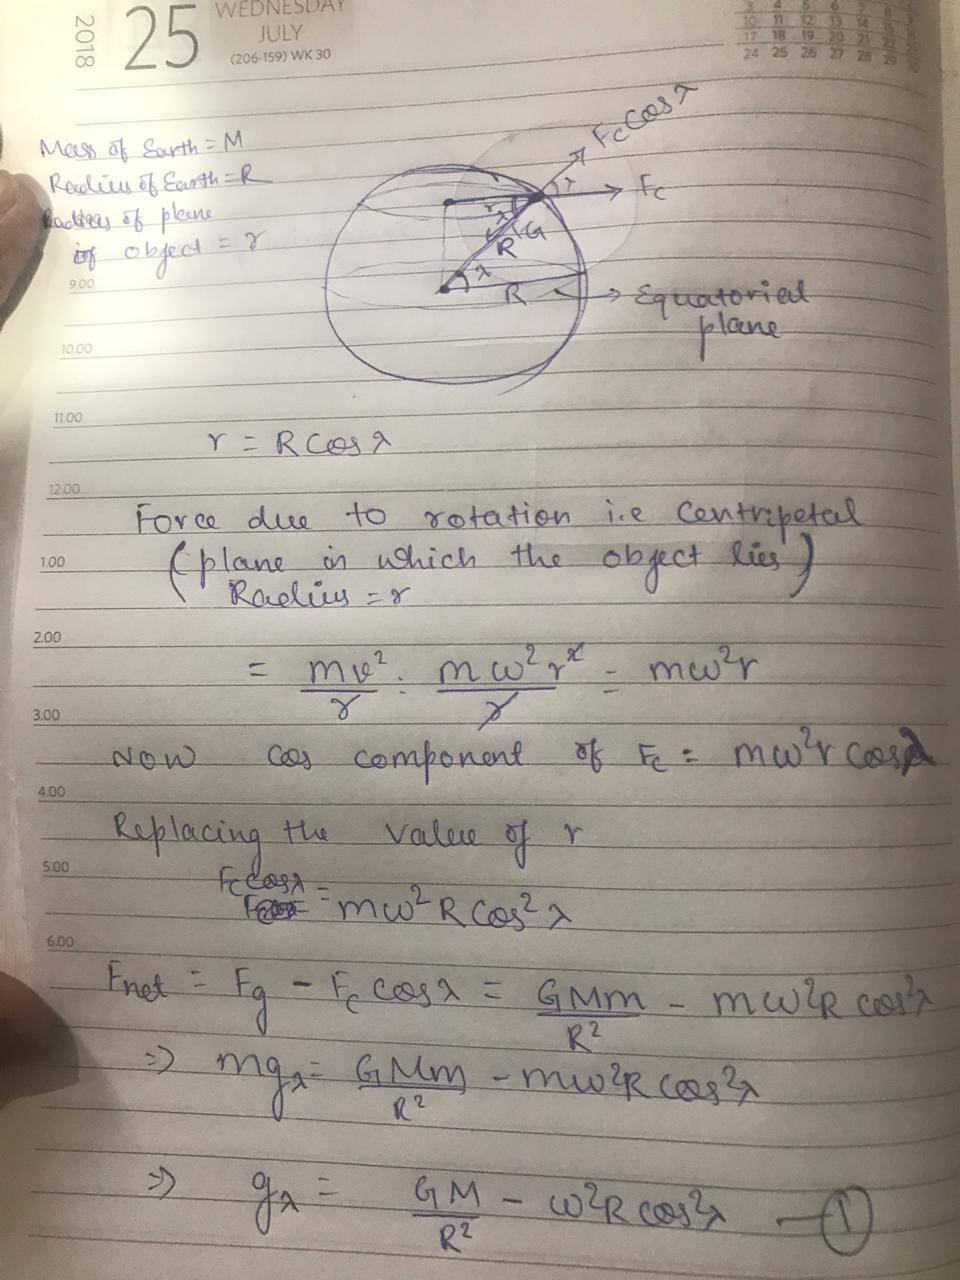 2018
25
WEDNESDAY
JULY
(206-159) WK 30
3 4 5 6 7 8
10 11 12 13 14
17 18 19 20 21 22
24 25 26 27 28 29 30
Mass of Earth = M
Radius of Earth = R
Radius of plane
of object = r
Fc Cos λ
λ
Fc
r
λ
G
R
λ
R
Equatorial
plane
9.00
10.00
11.00
r = R Cos λ
12.00
Force due to rotation i.e Centripetal
1.00
(plane in which the object lies)
Radius = r
2.00
= mv²/r = mω²r²/r = mω²r
3.00
Now cos component of Fc = mω²r cosλ
4.00
Replacing the value of r
5.00
Fc Cosλ = mω²R Cos²λ
6.00
Fnet = Fg - Fc cosλ = GMm/R² - mω²R cos²λ
=> mgλ = GMm/R² - mω²R cos²λ
=> gλ = GM/R² - ω²R cos²λ — ①